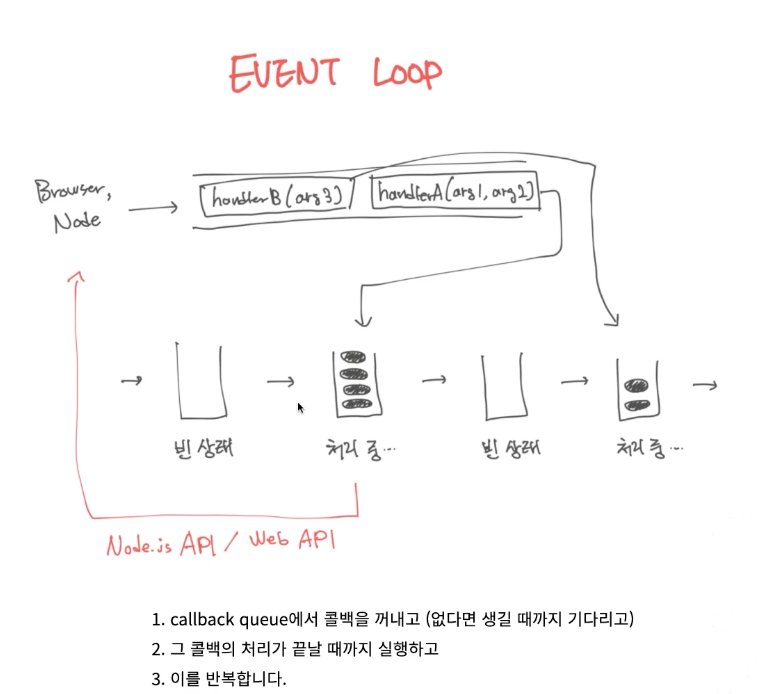 EVENT LOOP
Browser, Node
handlerB(arg3)
handlerA(arg1, arg2)
빈 상태
처리 중...
빈 상태
처리 중...
Node.js API / Web API
1. callback queue에서 콜백을 꺼내고 (없다면 생길 때까지 기다리고)
2. 그 콜백의 처리가 끝날 때까지 실행하고
3. 이를 반복합니다.